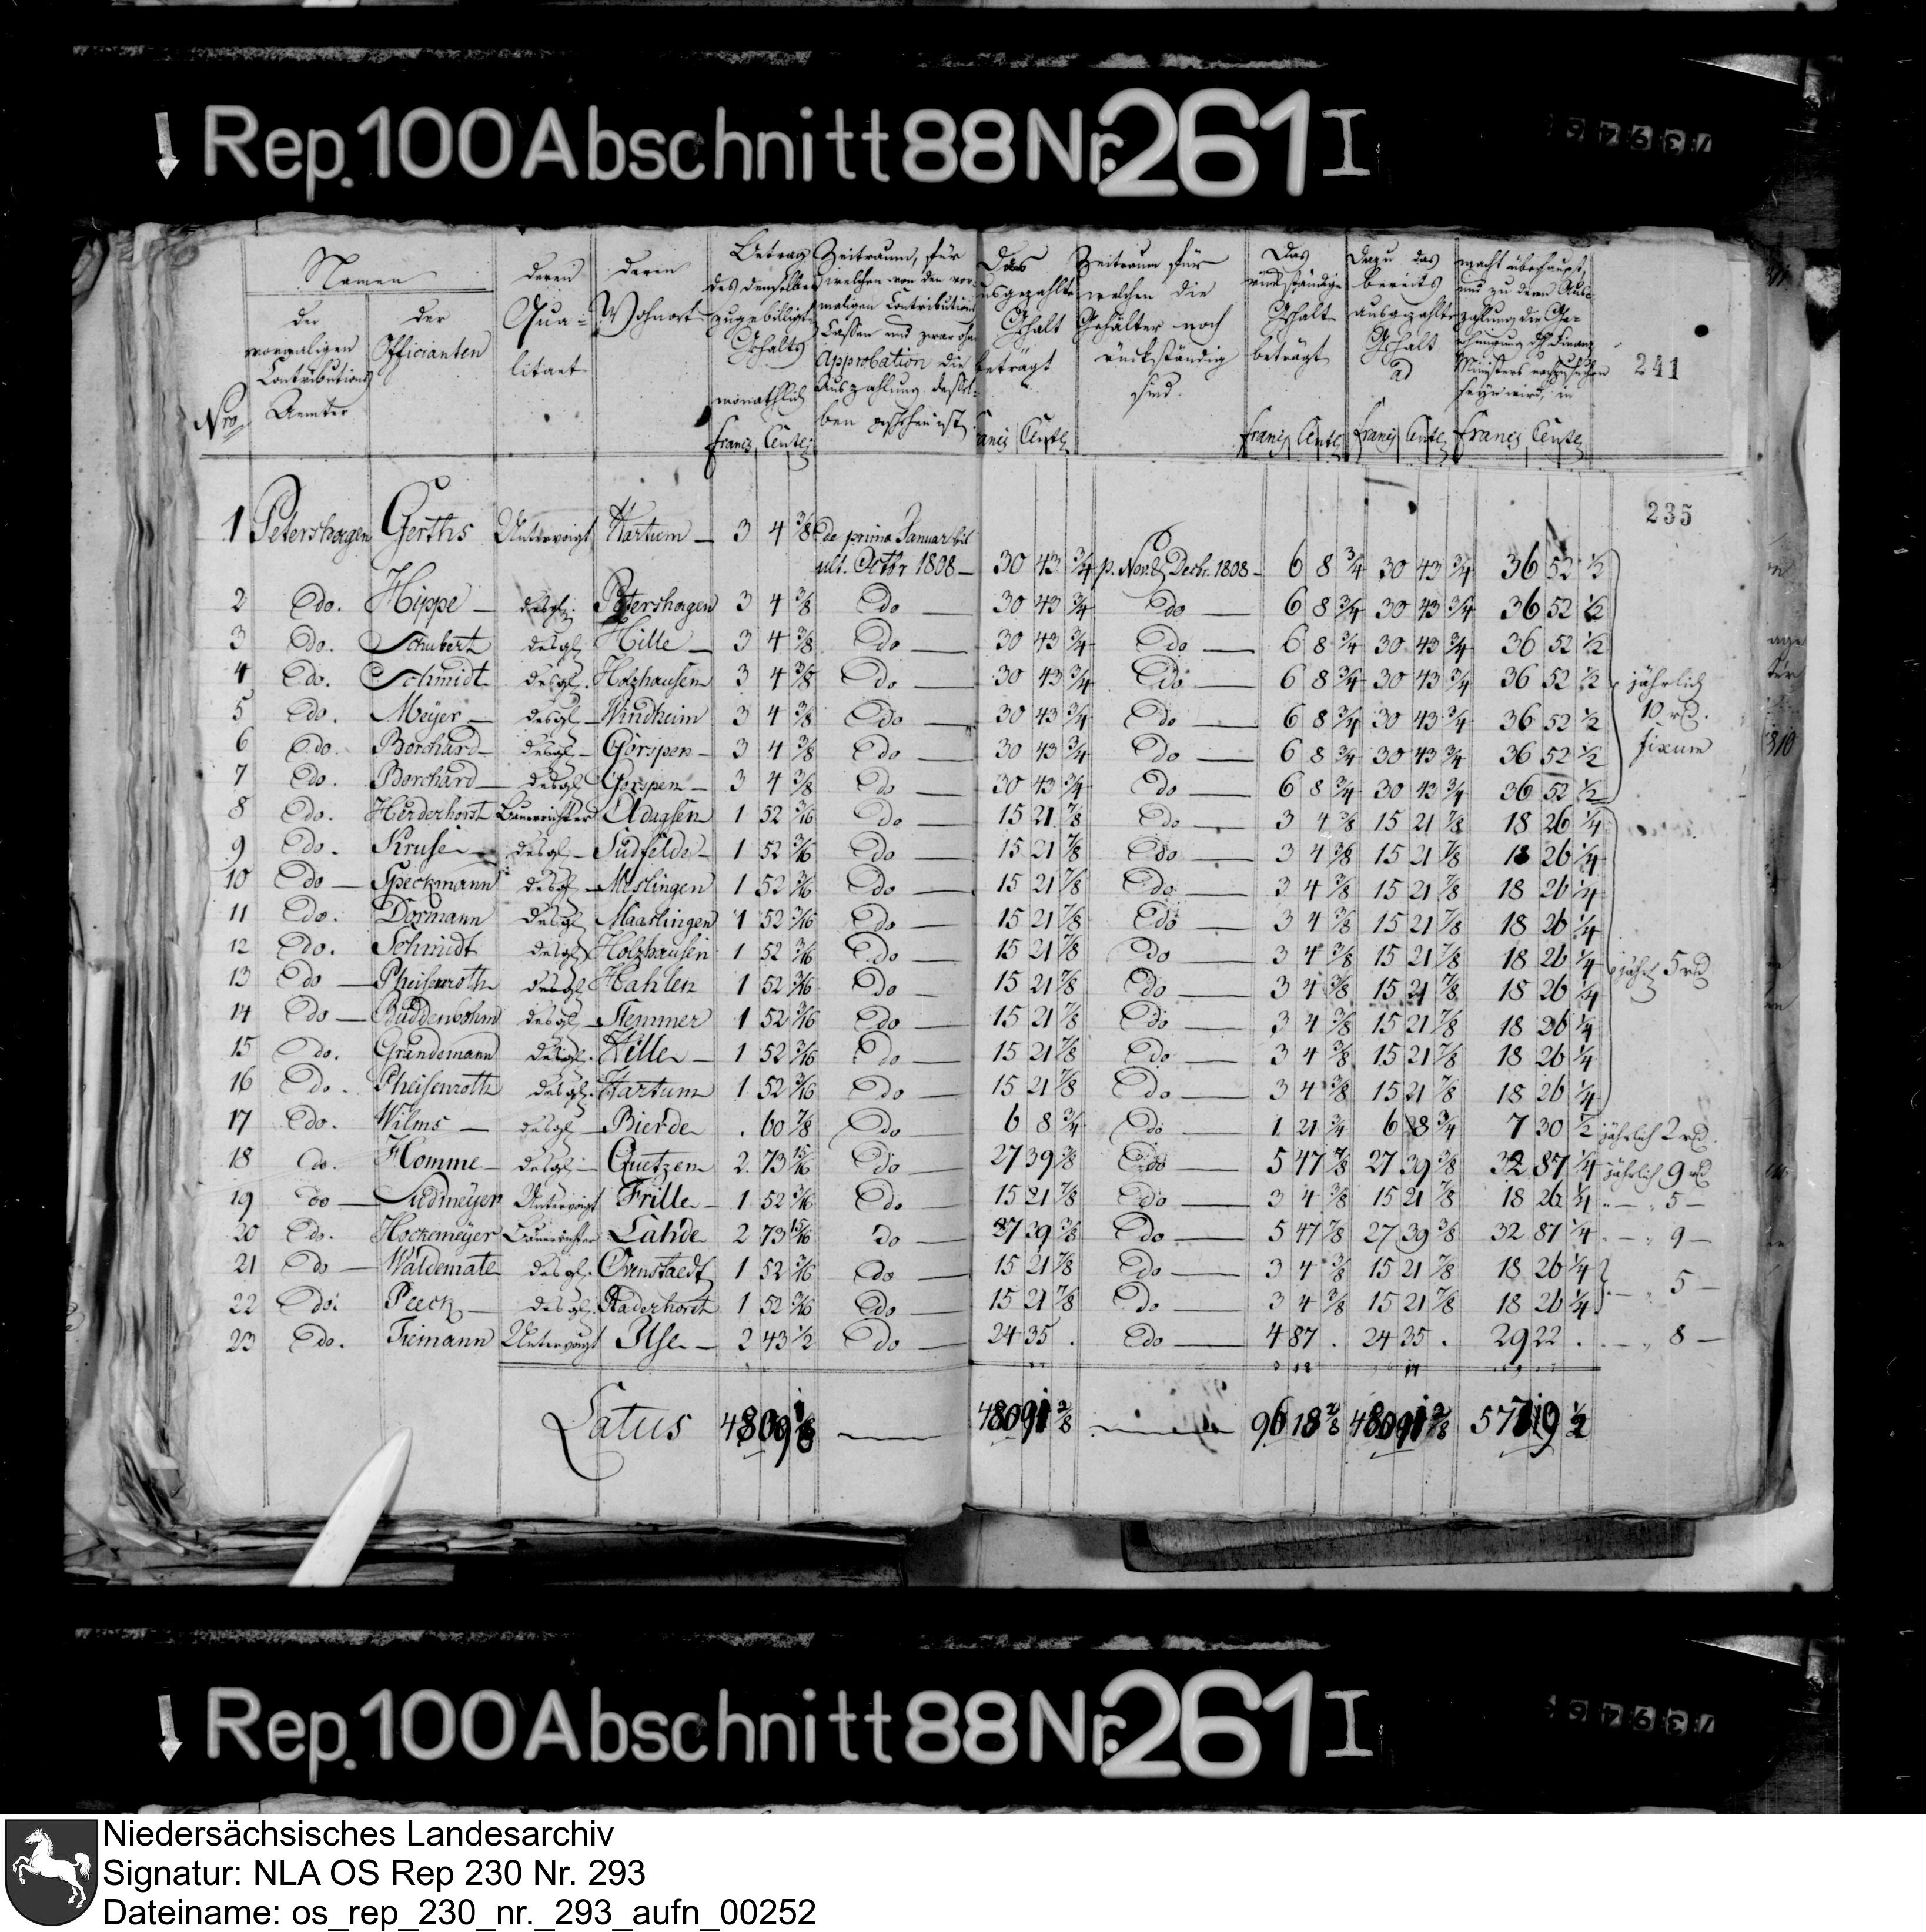 Rep. 100 Abschnitt 88 Nr. 261 I
Namen
der vormaligen Contributions Aemter
der Officianten
deren Qualitaet
deren Wohnort
Betrag des denselben zugebilligten Gehalts monathlich
Zeitraum, für welchen von den vormaligen Contributions Cassen und zwar ohne Approbation die Auszahlung desselben geschehen ist
Das ausgezahlte Gehalt beträgt
Zeitraum für welchen die Gehälter noch rückständig sind
Das rückständige Gehalt beträgt
Dazu das bereits ausgezahlte Gehalt ad
macht überhaupt, und zu deren Auszahlung die Genehmigung des Finanz Ministers nachzusuchen seyn wird, in
Nro
Francs Cents Francs Cents Francs Cents Francs Cents Francs Cents
241
235
1 Petershagen Gerths Untervoigt Hartum 3 4 3/8 de prima Januar bis ult. Octbr 1808 30 43 3/4 p. Nov. & Decbr. 1808 6 8 3/4 30 43 3/4 36 52 1/2
2 do. Hippe desgl. Petershagen 3 4 3/8 do 30 43 3/4 do 6 8 3/4 30 43 3/4 36 52 1/2
3 do. Schubert desgl. Hille 3 4 3/8 do 30 43 3/4 do 6 8 3/4 30 43 3/4 36 52 1/2
4 do. Schmidt desgl. Holzhausen 3 4 3/8 do 30 43 3/4 do 6 8 3/4 30 43 3/4 36 52 1/2
5 do. Meyer desgl. Windheim 3 4 3/8 do 30 43 3/4 do 6 8 3/4 30 43 3/4 36 52 1/2
6 do. Borchard desgl. Görspen 3 4 3/8 do 30 43 3/4 do 6 8 3/4 30 43 3/4 36 52 1/2
7 do. Borchard desgl. Gorspen 3 4 3/8 do 30 43 3/4 do 6 8 3/4 30 43 3/4 36 52 1/2
jährlich 10 rd. fixum
8 do. Herderhorst Bauerrichter Aldagsen 1 52 3/16 do 15 21 7/8 do 3 4 3/8 15 21 7/8 18 26 1/4
9 do. Kruse desgl. Südfelde 1 52 3/16 do 15 21 7/8 do 3 4 3/8 15 21 7/8 18 26 1/4
10 do Speckmann desgl. Meslingen 1 52 3/16 do 15 21 7/8 do 3 4 3/8 15 21 7/8 18 26 1/4
11 do. Dormann desgl. Maaslingen 1 52 3/16 do 15 21 7/8 do 3 4 3/8 15 21 7/8 18 26 1/4
12 do. Schmidt desgl. Holzhausen 1 52 3/16 do 15 21 7/8 do 3 4 3/8 15 21 7/8 18 26 1/4
13 do Pheisenroth desgl. Hahlen 1 52 3/16 do 15 21 7/8 do 3 4 3/8 15 21 7/8 18 26 1/4
14 do Buddenbohm desgl. Stemmer 1 52 3/16 do 15 21 7/8 do 3 4 3/8 15 21 7/8 18 26 1/4
15 do. Grundemann desgl. Hille 1 52 3/16 do 15 21 7/8 do 3 4 3/8 15 21 7/8 18 26 1/4
16 do. Pheisenroth desgl. Hartum 1 52 3/16 do 15 21 7/8 do 3 4 3/8 15 21 7/8 18 26 1/4
jährl. 5 rd
17 do. Wilms desgl. Bierde . 60 7/8 do 6 8 3/4 do 1 21 3/4 6 8 3/4 7 30 1/2 jährlich 2 rd.
18 do. Homme desgl. Quetzen 2 73 15/16 do 27 39 3/8 do 5 47 7/8 27 39 3/8 32 87 1/4 jährlich 9 rd
19 do Sudmeyer Untervoigt Frille 1 52 3/16 do 15 21 7/8 do 3 4 3/8 15 21 7/8 18 26 1/4 5
20 do. Hockemeyer Bauerrichter Lahde 2 73 15/16 do 27 39 3/8 do 5 47 7/8 27 39 3/8 32 87 1/4 9
21 do Waldemate desgl. Ovenstaedt 1 52 3/16 do 15 21 7/8 do 3 4 3/8 15 21 7/8 18 26 1/4
22 do. Peeck desgl. Raderhorst 1 52 3/16 do 15 21 7/8 do 3 4 3/8 15 21 7/8 18 26 1/4 5
23 do. Tiemann Untervoigt Ilse 2 43 1/2 do 24 35 . do 4 87 . 24 35 . 29 22 . 8
Latus 48 09 1/8 480 91 2/8 96 18 2/8 480 91 2/8 577 19 1/2
Rep. 100 Abschnitt 88 Nr. 261 I
Niedersächsisches Landesarchiv
Signatur: NLA OS Rep 230 Nr. 293
Dateiname: os_rep_230_nr._293_aufn_00252